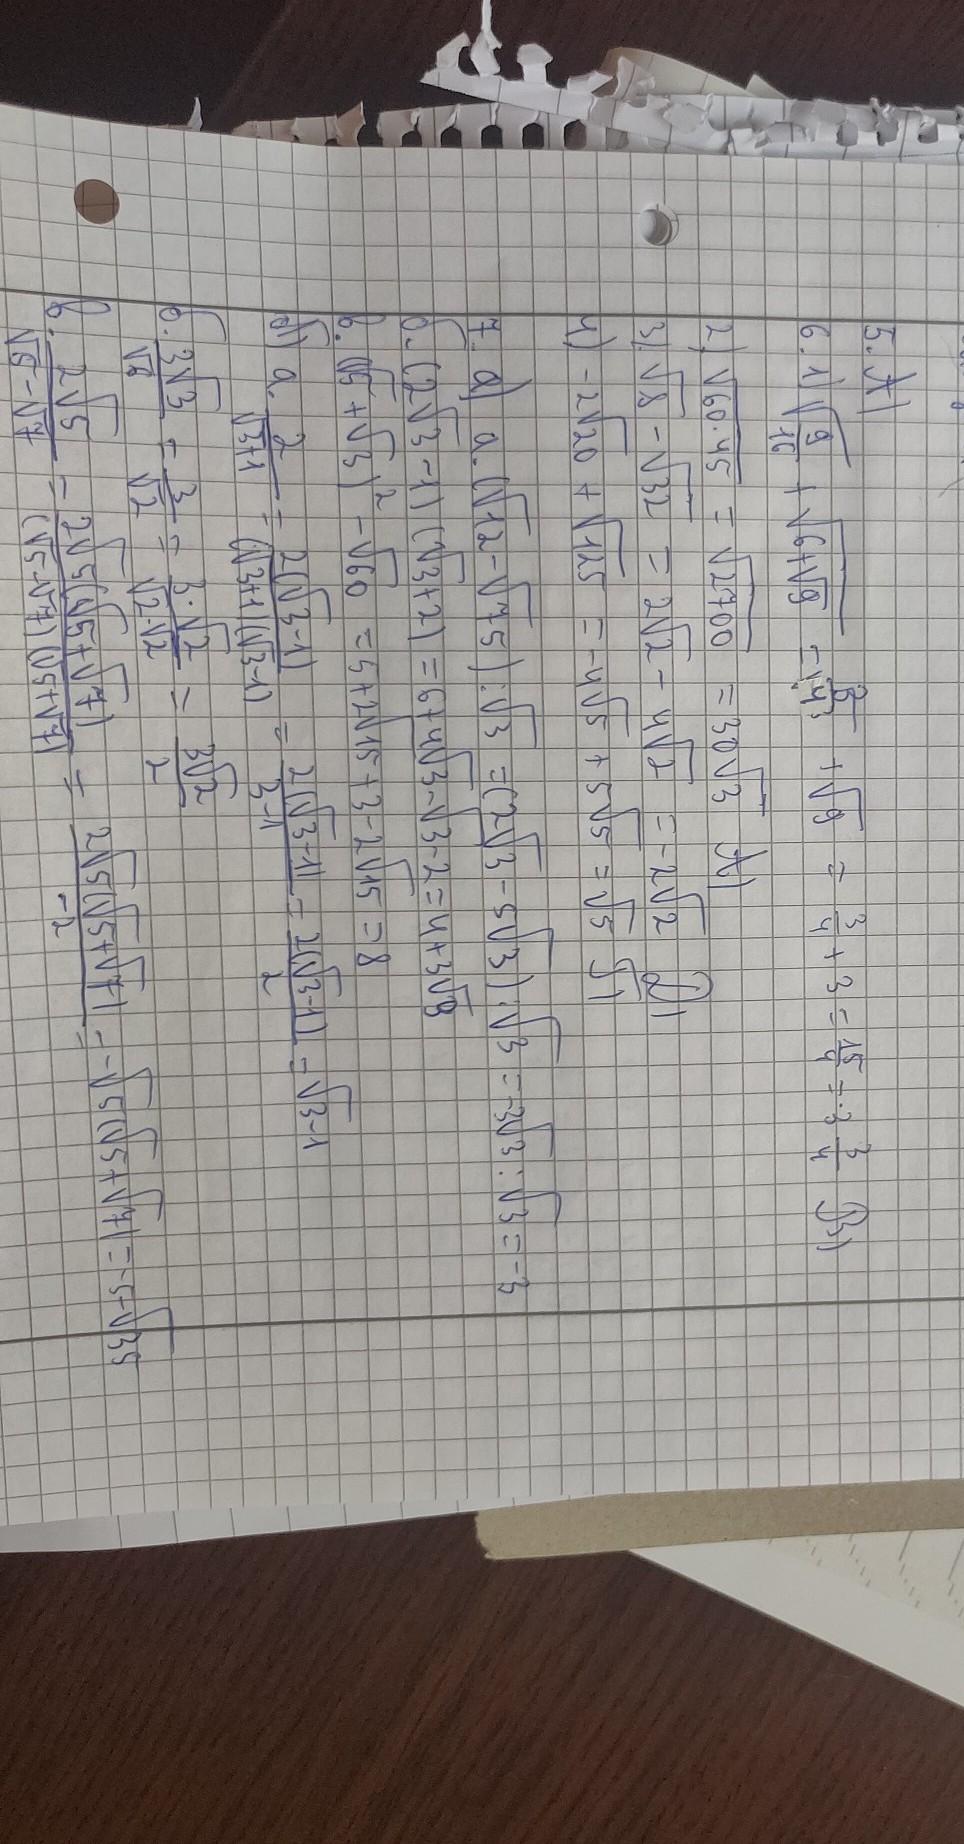 5. A)
6. 1) √(9/16) + √(6+√9) = 3/4 + √9 = 3/4 + 3 = 15/4 = 3 3/4 B)
2) √(60·45) = √2700 = 30√3 A)
3) √8 - √32 = 2√2 - 4√2 = -2√2
4) -2√20 + √125 = -4√5 + 5√5 = √5
7. a. (√12 - √75) : √3 = (2√3 - 5√3) : √3 = -3√3 : √3 = -3
б. (2√3 - 1)(√3 + 2) = 6 + 4√3 - √3 - 2 = 4 + 3√3
в. (√5 + √3)² - √60 = 5 + 2√15 + 3 - 2√15 = 8
a. 2/(√3+1) = 2(√3-1)/((√3+1)(√3-1)) = 2(√3-1)/(3-1) = 2(√3-1)/2 = √3-1
б. 3√3/√6 = 3/√2 = 3·√2/(√2·√2) = 3√2/2
в. 2√5/(√5-√7) = 2√5(√5+√7)/((√5-√7)(√5+√7)) = 2√5(√5+√7)/-2 = -√5(√5+√7) = -5-√35